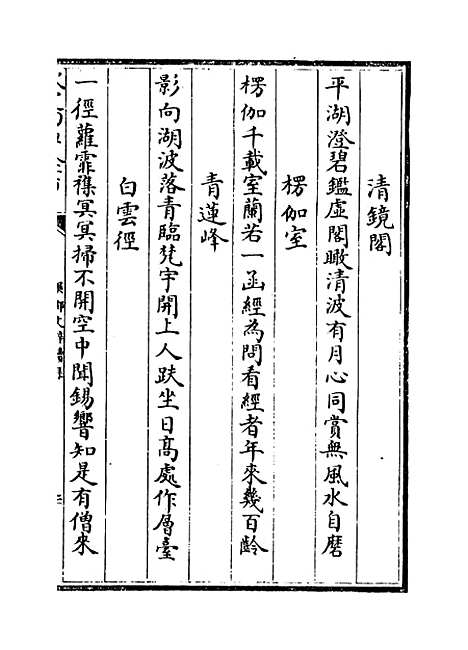 清鏡閣
平湖澄碧鑑虛閣瞰清波有月心同賞無風水自磨
楞伽室
楞伽千載室蘭若一函經為問看經者年來幾百齡
青蓮峰
影向湖波落青臨梵宇開上人趺坐日高處作層臺
白雲徑
一徑蘿霏襍冥冥掃不開空中聞錫響知是有僧來